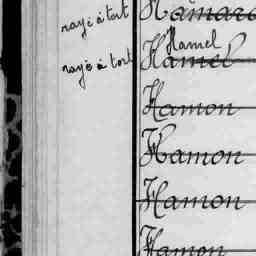 rayé à tort Hamard
Hamel
rayé à tort Hamel
Hamon
Hamon
Hamon
Hamon